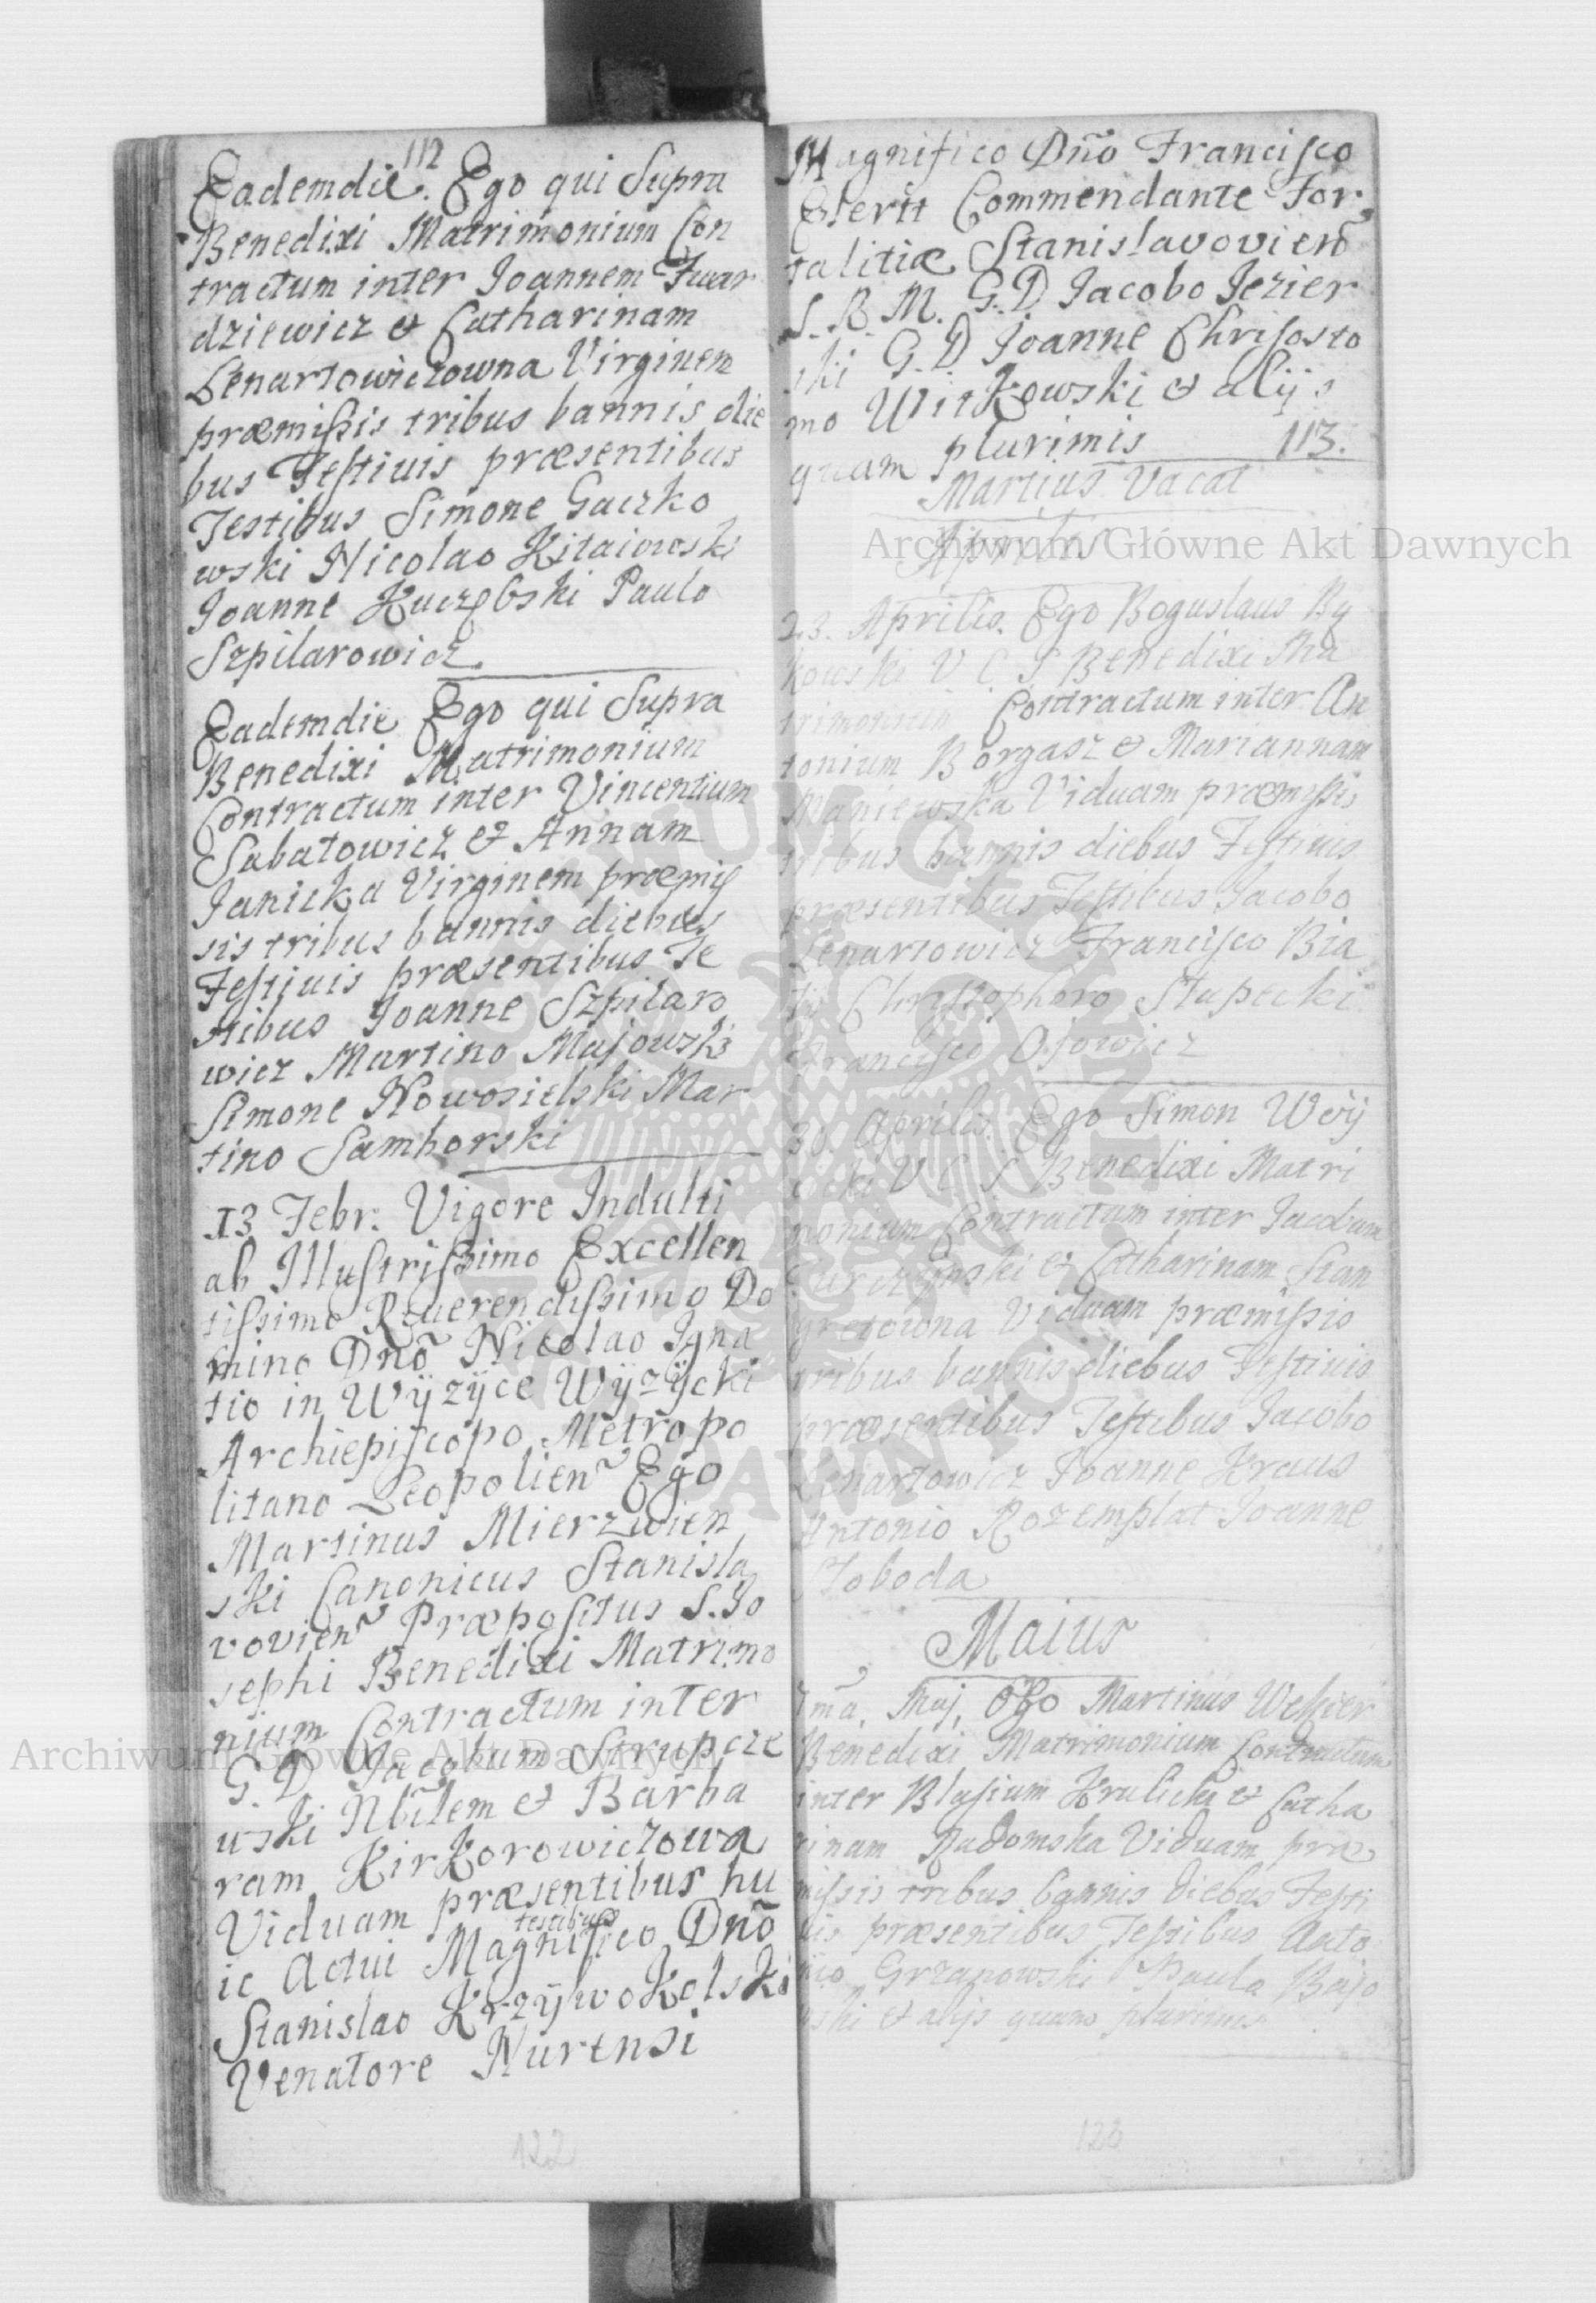 112
Eademdie. Ego qui Supra
Benedixi Matrimonium Con
tractum inter Joannem Twar
dziewicz et Catharinam
Lenartowiczowna Virginem
præmissis tribus bannis die
bus Festiuis præsentibus
Testibus Simone Gaczko
wski Nicolao Kitaiowski
Joanne Kuczębski Paulo
Szpilarowicz.
Eademdie Ego qui Supra
Benedixi Matrimonium
Contractum inter Vincentium
Sabatowicz et Annam
Janicka Virginem præmis
sis tribus bannis diebus
Festiuis præsentibus Te
stibus Joanne Szpilaro
wicz Martino Majowski
Simone Nowosielski Mar
tino Samborski
13 Febr. Vigore Indulti
ab Illustrissimo Excellen
tissimo Reuerendissimo Do
mino Dño Nicolao Igna
tio in Wÿzÿce Wÿzÿcki
Archiepiscopo Metropo
litano Leopolien~ Ego
Martinus Mierzwien
ski Canonicus Stanisla
vovien~ Præpositus S. Jo
sephi Benedixi Matrimo
nium Contractum inter
G. D Jacobum Strupcze
wski Nbilem et Barba
ram Kirkorowiczowa
Viduam præsentibus hu
ic Actui testibus Magnifico Dño
Stanislao Krzÿwokolski
Venatore Nurensi
122
Magnifico Dño Francisco
Eserit Commendante For
talitiæ Stanislavovien~
S. R. M. G. D Jacobo Jezier
ski G. D Joanne Chrisosto
mo Witkowski et alijs
quam plurimis 113.
Martius Vacat
Aprilis
23. Aprilis. Ego Boguslaus By
kowski V C S Benedixi Ma
trimonium Contractum inter An
tonium Borgasz et Mariannam
Maniewska Viduam præmissis
tribus bannis diebus Festiuis
præsentibus Testibus Jacobo
Lenartowicz Francisco Bia
ły Christophoro Słupecki
Francisco Osowicz
30. Aprilis. Ego Simon Woÿ
cicki V C S Benedixi Matri
monium Contractum inter Jacobum
Turczynski et Catharinam Stan
gretowna Viduam præmissis
tribus bannis diebus Festiuis
præsentibus Testibus Jacobo
Lenartowicz Joanne Kraus
Antonio Rozemplat Joanne
Słoboda
Maius
7ma. Maj. Ego Martinus Weksier
Benedixi Matrimonium Contractum
inter Blasium Krulicki et Catha
rinam Radomska Viduam præ
missis tribus bannis diebus Festi
uis præsentibus Testibus Anto
nio Grzanowski Paulo Bajo
wski et alijs quam plurimis
123
Archiwum Główne Akt Dawnych
Archiwum Główne Akt Dawnych